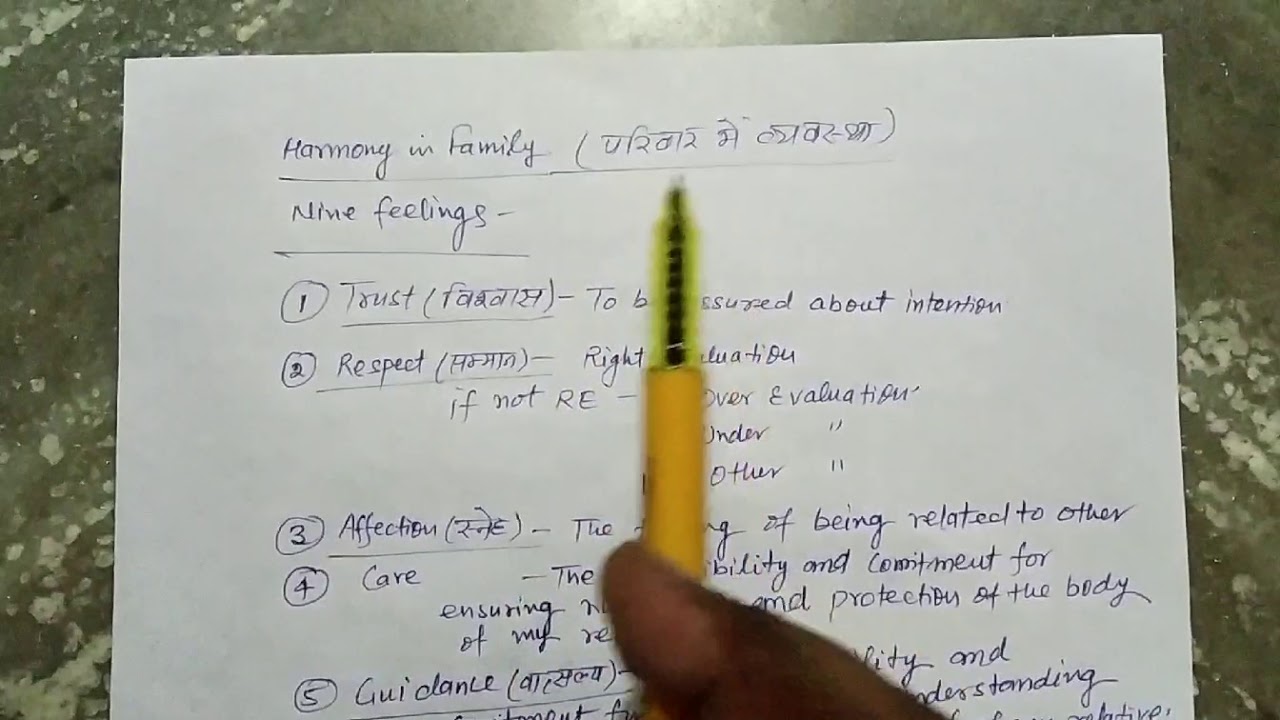 Harmony in Family (परिवार में व्यवस्था)
Nine feelings -
① Trust (विश्वास) - To b ssured about intention
② Respect (सम्मान) - Right luation
if not RE - Over Evaluation
Under "
Other "
③ Affection (स्नेह) - The of being related to other
④ Care - The bility and Comitment for
ensuring and protection of the body
of my re
⑤ Guidance (वात्सल्य) - lity and
nderstanding
relative.